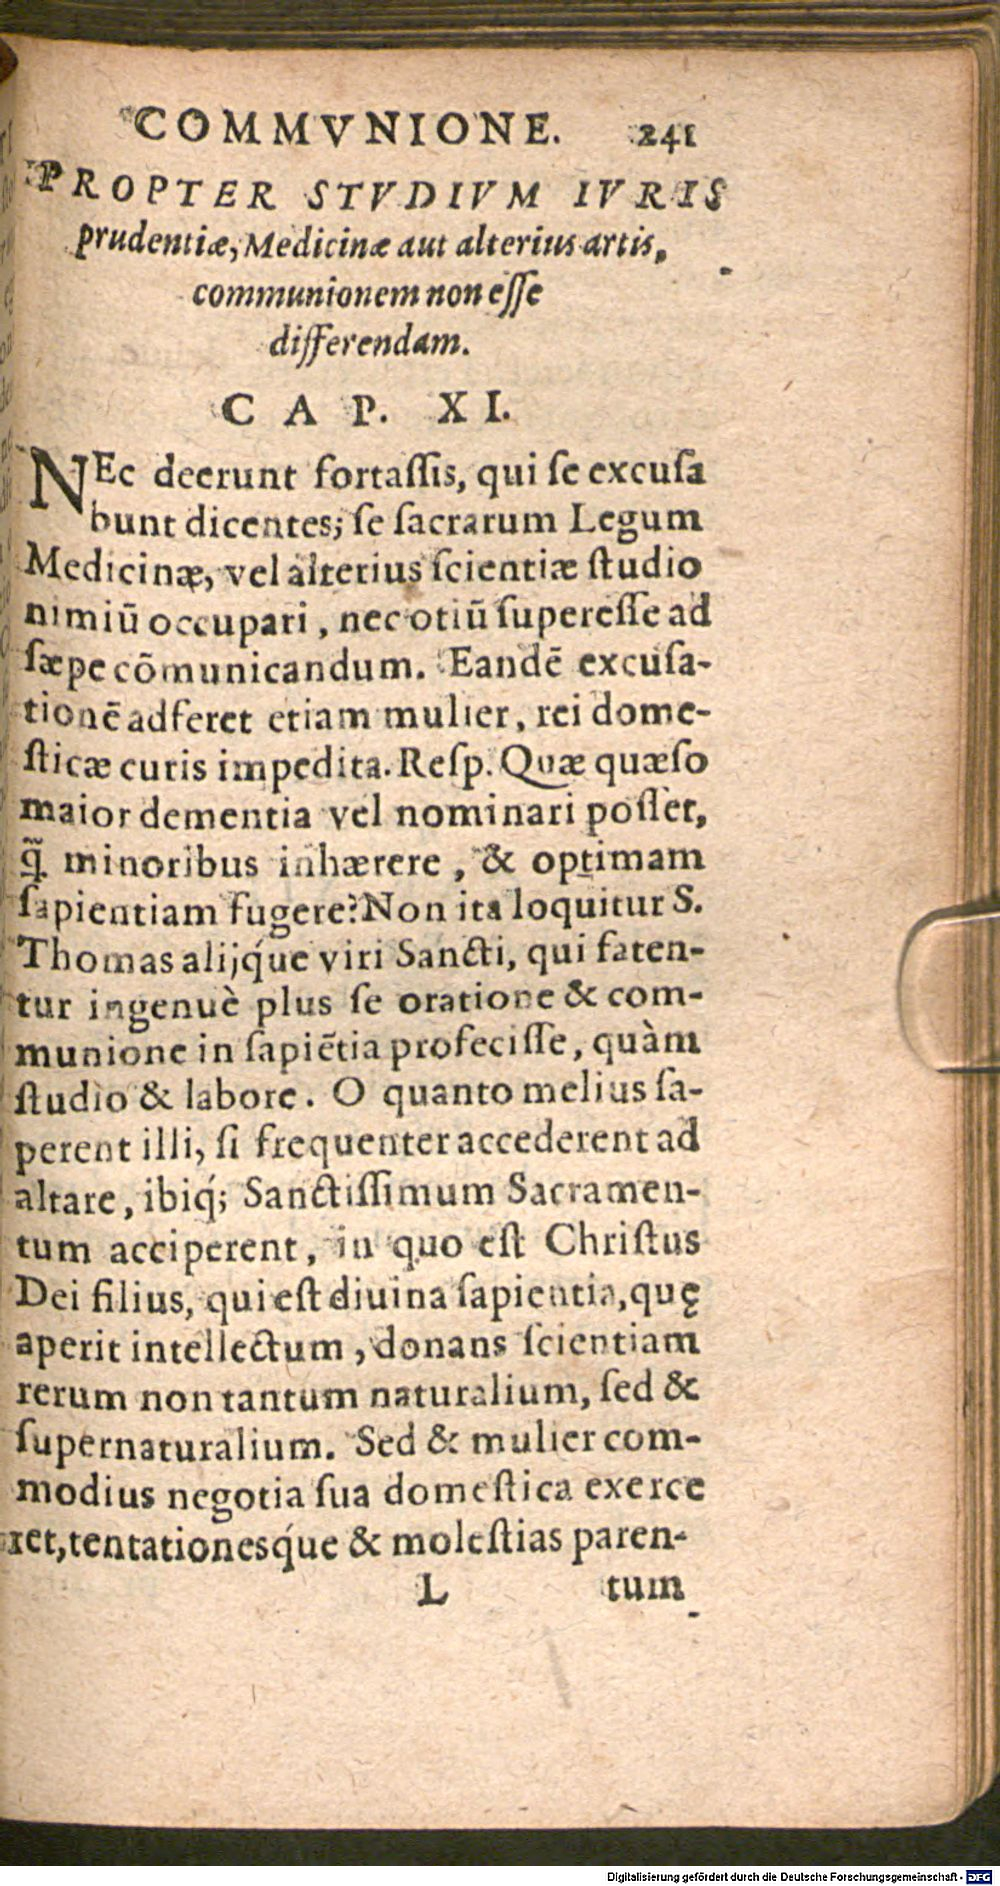 COMMVNIONE. 241
PROPTER STVDIVM IVRIS
prudentiæ, Medicinæ aut alterius artis,
communionem non eſſe
differendam.
CAP. XI.
NEc deerunt fortaſſis, qui ſe excuſa
bunt dicentes; ſe ſacrarum Legum
Medicinæ, vel alterius ſcientiæ ſtudio
nimiū occupari, nec otiū ſupereſſe ad
ſæpe cōmunicandum. Eandē excuſa-
tionē adferet etiam mulier, rei dome-
ſticæ curis impedita. Reſp. Quæ quæſo
maior dementia vel nominari poſſet,
q̃ minoribus inhærere, & optimam
ſapientiam fugere? Non ita loquitur S.
Thomas alijq́ue viri Sancti, qui faten-
tur ingenuè plus ſe oratione & com-
munione in ſapiētia profeciſſe, quàm
ſtudio & labore. O quanto melius ſa-
perent illi, ſi frequenter accederent ad
altare, ibiq́; Sanctiſſimum Sacramen-
tum acciperent, in quo eſt Chriſtus
Dei filius, qui eſt diuina ſapientia, quę
aperit intellectum, donans ſcientiam
rerum non tantum naturalium, ſed &
ſupernaturalium. Sed & mulier com-
modius negotia ſua domeſtica exerce
ret, tentationesq́ue & moleſtias paren-
L tum
Digitalisierung gefördert durch die Deutsche Forschungsgemeinschaft - DFG